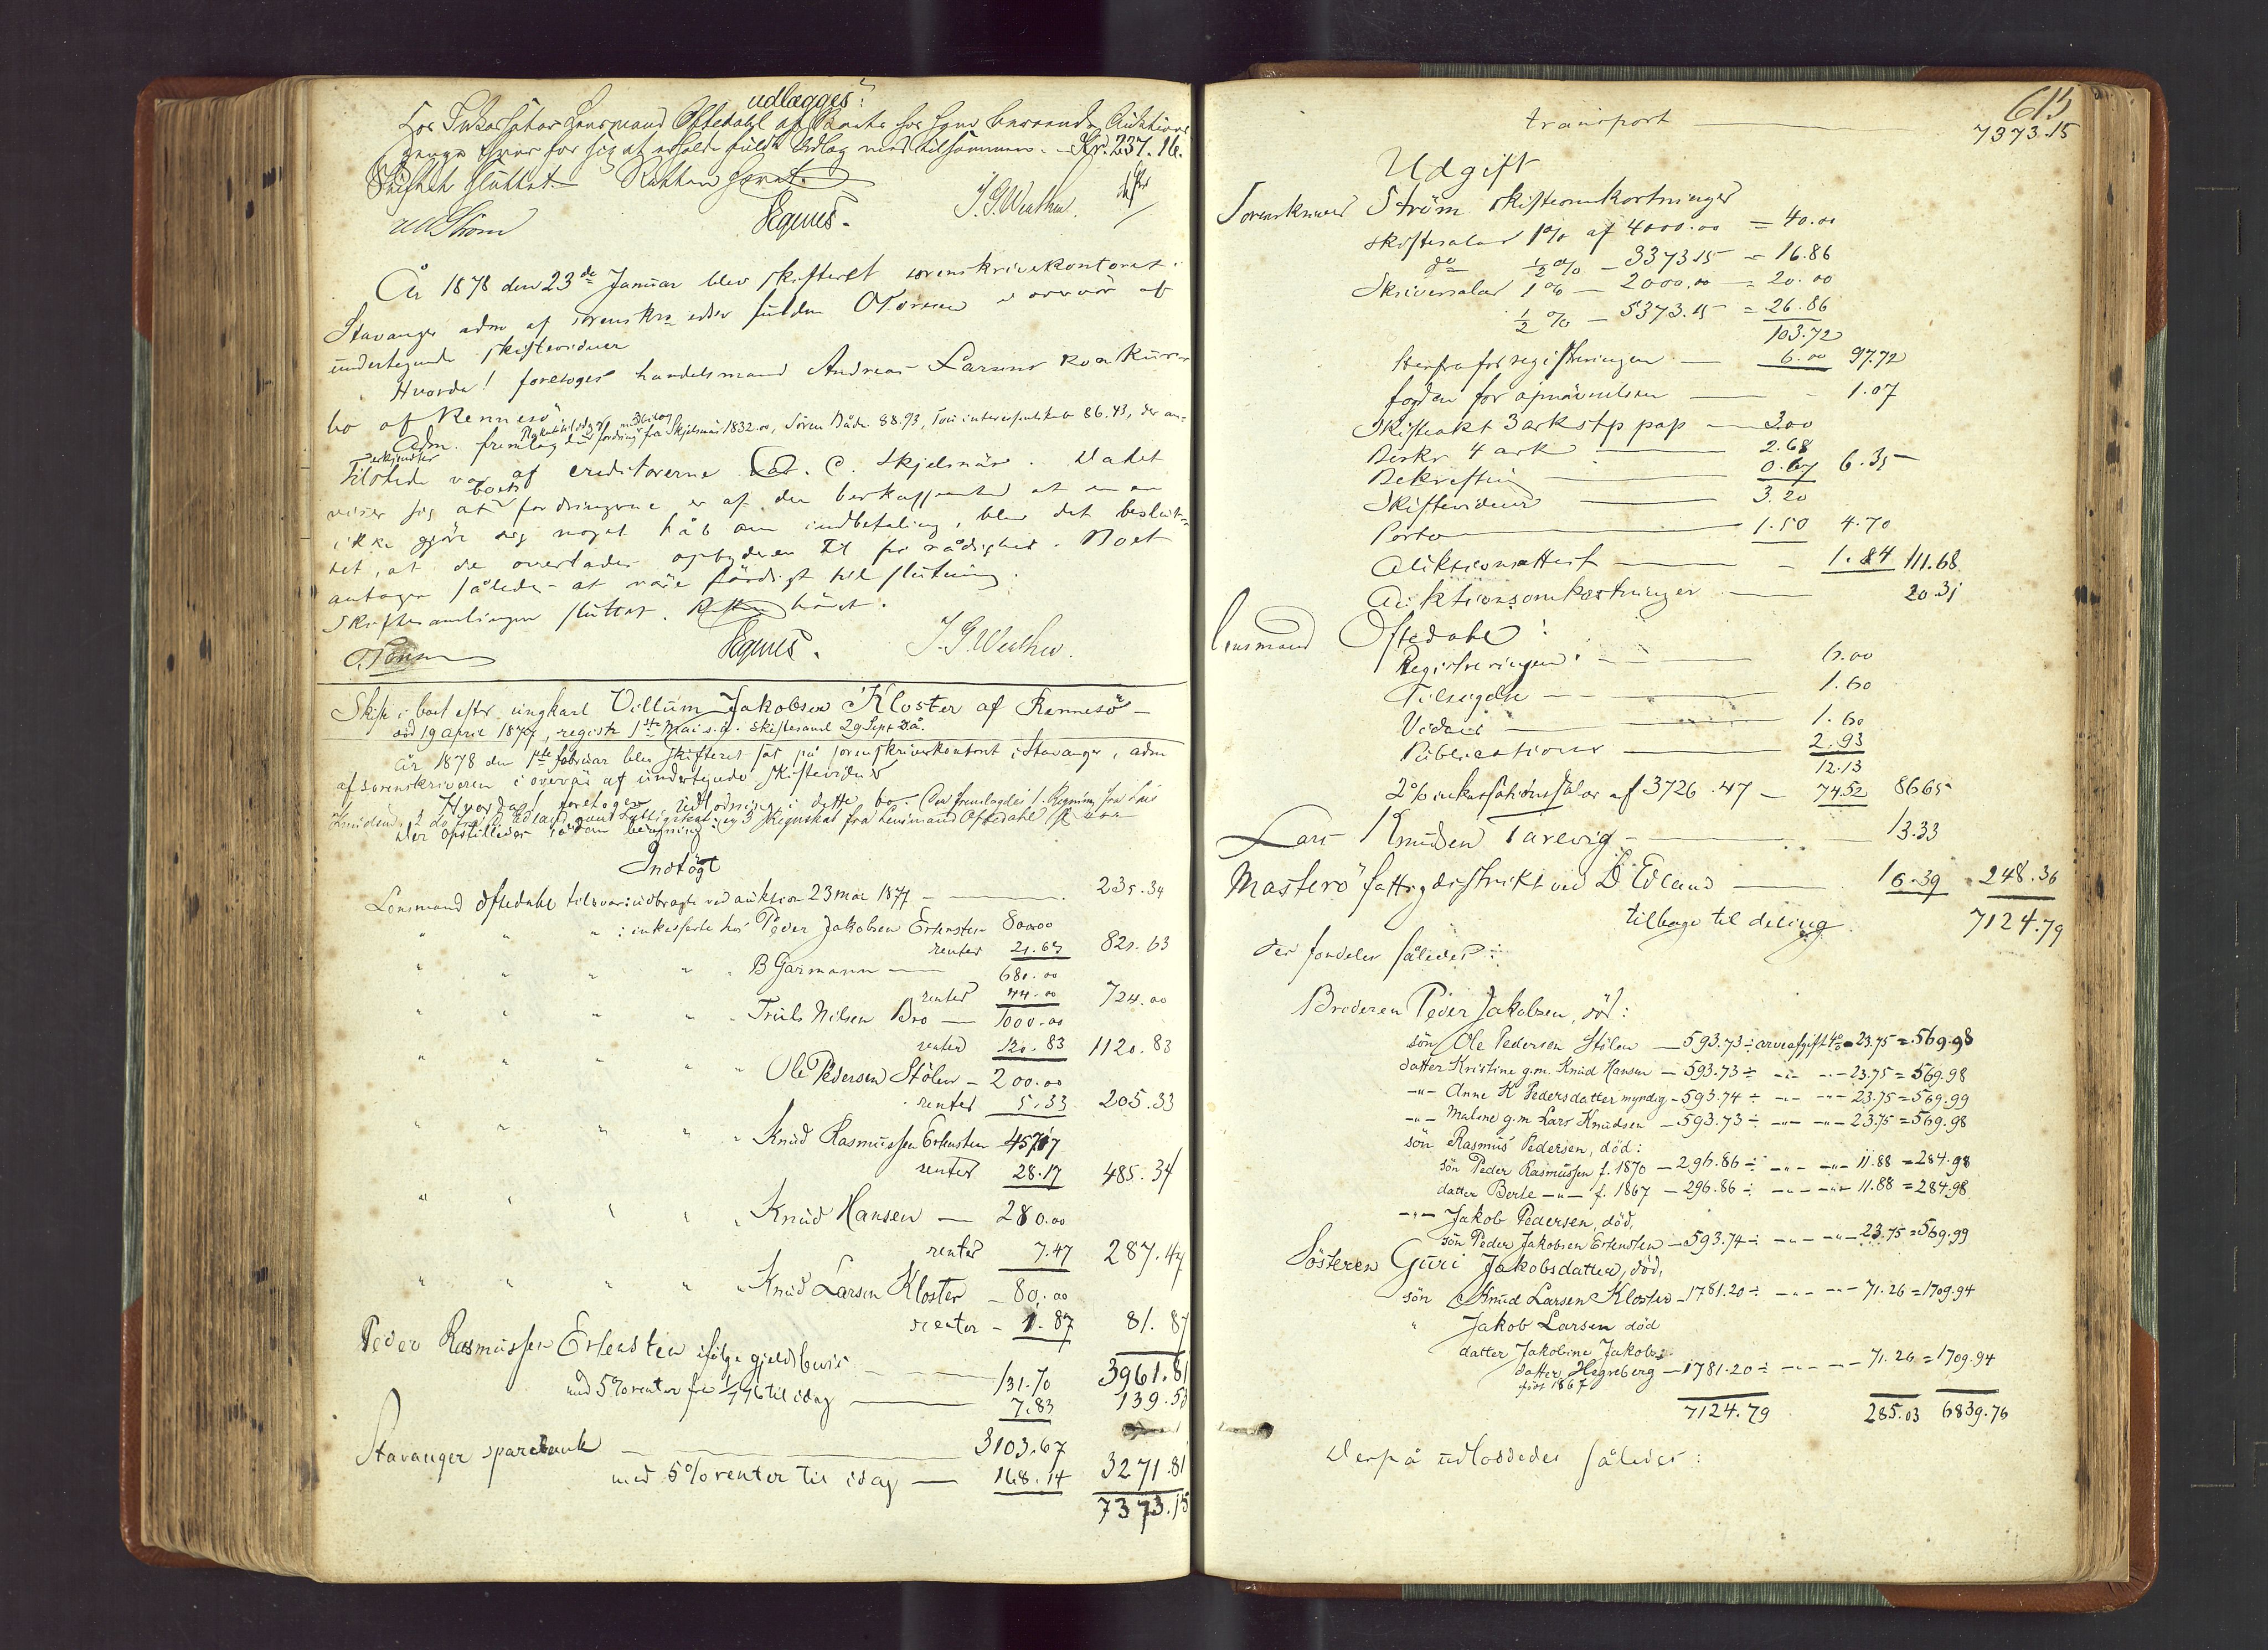 udlægges:
Lensmand Oftedahl
fuldt Udlag med tilsammen. Kr. 237.16.
Skiftet sluttet. Retten hævet.
Strøm Egenes. J. G. Wiethew.
År 1878 den 23de Januar blev skifteret sorenskriverkontoret i
Stavanger adm af sorenskr edsv fuldm O Tønsen i overvær af
undertegnede skiftevidner
Hvorda! foretoges handelsmand Andreas Larsens konkurs
bo af Rennesö
Adm. fremlag fordring fra Skjelnäs 1832.00, Sören Bådr. 88.93, Tou interessentskab 86.43, der an-
erkjendtes
Tilstede var af creditorerne C. Skjelnäs. Da det
viser sig at boets fordringerne er af den beskaffenhed at man
ikke gjöre sig noget håb om indbetaling, blev det beslut-
tet, at de overlades opbyderen til fri rådighed. Boet
antoges således at väre färdigt til slutning.
Skiftesamlingen sluttet. Retten hävet.
O. Tönsen Egenes. J. G. Wiethew.
Skifte i boet efter ungkarl Villum Jakobsen Kloster af Rennesö –
död 19 april 1877, registr 1ste Mai s.å. skiftesaml 29 Sept d.å.
År 1878 den 1ste februar blev skifteret sat på sorenskriverkontoret i Stavanger, adm
af sorenskriveren i overvär af undertegnede skiftevidner
Hvorda! foretoges udlodning i dette bo. Der fremlagdes 1. Regning fra Lars
Knudsen, 2 do fra D. Edland 3 Regnskab fra Lensmand Oftedahl
Der opstilledes sådan beregning:
Indtägt
Lensmand Oftedahl tilsvar: udbragt ved auktion 23 mai 1877 – 235.34
" " " : inkasserte hos Peder Jakobsen Ertensten 800.00
renter 21.63 821.63
" " " " " B Garmann — 680.00
renter 44.00 724.00
" " " " " Truls Nilsen Bro — 1000.00
renter 120.83 1120.83
" " " " " Ole Pedersen Stölen – 200.00
renter 5.33 205.33
" " " " " Knud Rasmussen Ertensten 457.17
renter 28.17 485.34
" " " " " Knud Hansen — 280.00
renter 7.47 287.47
" " " " " Knud Larsen Kloster – 80.00
renter – 1.87 81.87
3961.81
Peder Rasmussen Ertensten ifölge gjeldsbevis — 131.70
med 5% renter fra 1/76 til idag — 7.83 139.53
Stavanger sparebank — 3103.67
med 5% renter til idag — 168.14 3271.81
7373.15
613
transport — 7373.15
Udgift
Sorenskriver Ström skifteomkostninger
skiftesalar 1% af 4000.00 = 40.00
do ½% – 3373.15 = 16.86
Skriversalar 1% – 2000.00 = 20.00
½% – 5373.15 = 26.86
103.72
herfra for registreringen — 6.00 97.72
fogden for opnävnelsen — 1.07
Skifteakt 3 ark stp pap — 3.00
Beskr 4 ark — 2.68
Bekreftelse — 0.67 6.35
Skiftevidner — 3.20
Porto — 1.50 4.70
Auktionsattest — 1.84 111.68
Auktionsomkostninger — 20.31
Lensmand Oftedahl:
Registreringen: — 6.00
Tilsigelse — 1.60
Vidner — 1.60
Publicationer — 2.93
12.13
2% inkassationssalar af 3726.47 – 74.52 86.65
Lars Knudsen Tarevig — 13.33
Masterö fattigdistrikt ved D. Edland — 16.39 248.36
tilbage til deling 7124.79
der fordeles således:
Broderen Peder Jakobsen, död:
sön Ole Pedersen Stölen — 593.73 ÷ arveafgift 4% = 23.75 = 569.98
datter Kristine g.m. Knud Hansen — 593.73 ÷ –"– –"– 23.75 = 569.98
–"– Anne K Pedersdatter myndig – 593.74 ÷ –"– –"– 23.75 = 569.99
–"– Malene g.m Lars Knudsen – 593.73 ÷ –"– –"– 23.75 = 569.98
sön Rasmus Pedersen, död:
sön Peder Rasmussen f. 1870 — 296.86 ÷ –"– –"– 11.88 = 284.98
datter Berte –"– f. 1867 – 296.86 ÷ –"– –"– 11.88 = 284.98
–"– Jakob Pedersen, död,
sön Peder Jakobsen Ertensten – 593.74 ÷ –"– –"– 23.75 = 569.99
Sösteren Guri Jakobsdatter, död,
sön Knud Larsen Kloster – 1781.20 ÷ –"– –"– 71.26 = 1709.94
" Jakob Larsen död
datter Jakobine Jakobs-
datter Hegreberg – 1781.20 ÷ –"– –"– 71.26 = 1709.94
födt 1867
7124.79 285.03 6839.76
Derpå udloddedes således: